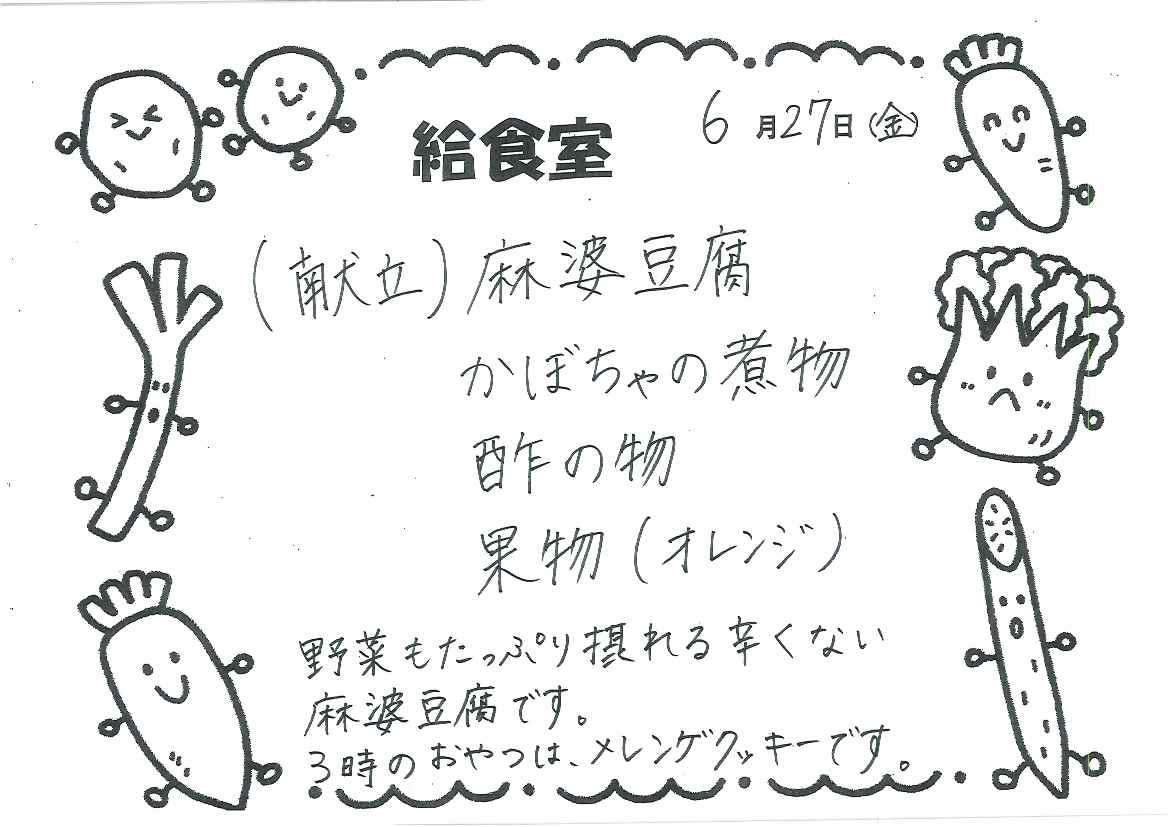 給食室
6月27日(金)
(献立)麻婆豆腐
かぼちゃの煮物
酢の物
果物(オレンジ)
野菜もたっぷり摂れる辛くない
麻婆豆腐です。
3時のおやつは、メレンゲクッキーです。